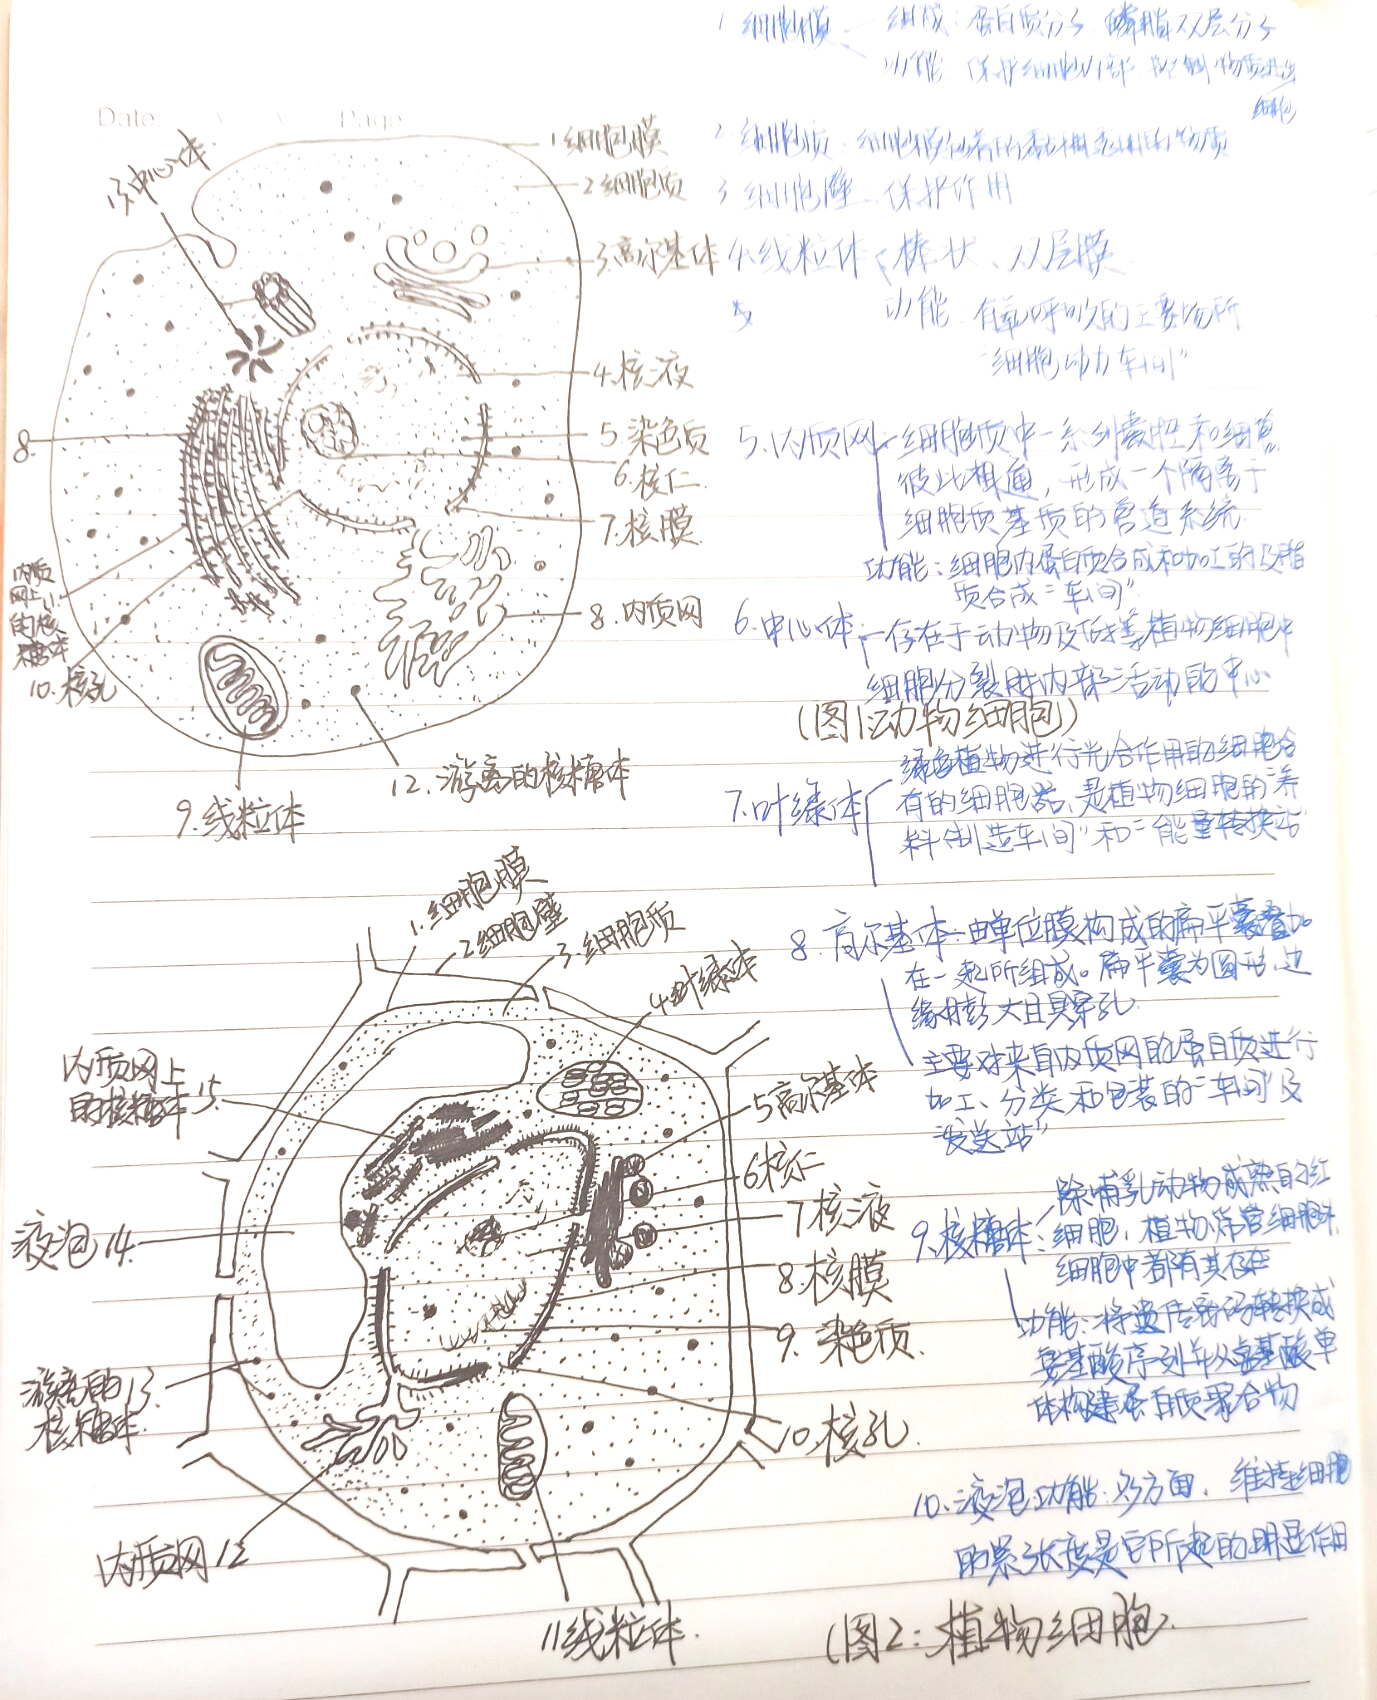 1 细胞膜 组成：蛋白质分子 磷脂双层分子
功能 保护细胞内部 控制物质进出
细胞
Date
Page
2 细胞质：细胞膜包着的黏稠透明的物质
3 细胞壁 保护作用
4.线粒体 棒状、双层膜
功能 有氧呼吸的主要场所
"细胞动力车间"
5.内质网 细胞质中一系列囊腔和细管
彼此相通，形成一个隔离于
细胞质基质的管道系统.
功能：细胞内蛋白质合成和加工的及脂
质合成"车间"
6.中心体 存在于动物及低等植物细胞中
细胞分裂时内部活动的中心
13.中心体
1细胞膜
2细胞质
3.高尔基体
4.核液
5.染色质
6.核仁
7.核膜
8.内质网
8
内质
网上11.
的核
糖体
10.核孔
9.线粒体
12.游离的核糖体
(图1:动物细胞)
7.叶绿体 绿色植物进行光合作用的细胞含
有的细胞器，是植物细胞的"养
料制造车间"和"能量转换站"
8.高尔基体 由单位膜构成的扁平囊叠加
在一起所组成。扁平囊为圆形，边
缘膨大且具穿孔
主要对来自内质网的蛋白质进行
加工、分类和包装的"车间"及
"发送站"
9.核糖体：除哺乳动物成熟的红
细胞，植物筛管细胞外，
细胞中都有其存在
功能：将遗传密码转换成
氨基酸序列并从氨基酸单
体构建蛋白质聚合物
10.液泡功能：多方面，维持细胞
的紧张度是它所起的明显作用
1.细胞膜
2细胞壁
3.细胞质
4叶绿体
5高尔基体
6核仁
7核液
8.核膜
9.染色质.
10.核孔
11线粒体.
内质网12
游离的13.
核糖体.
液泡14.
内质网上
的核糖体15.
(图2:植物细胞.